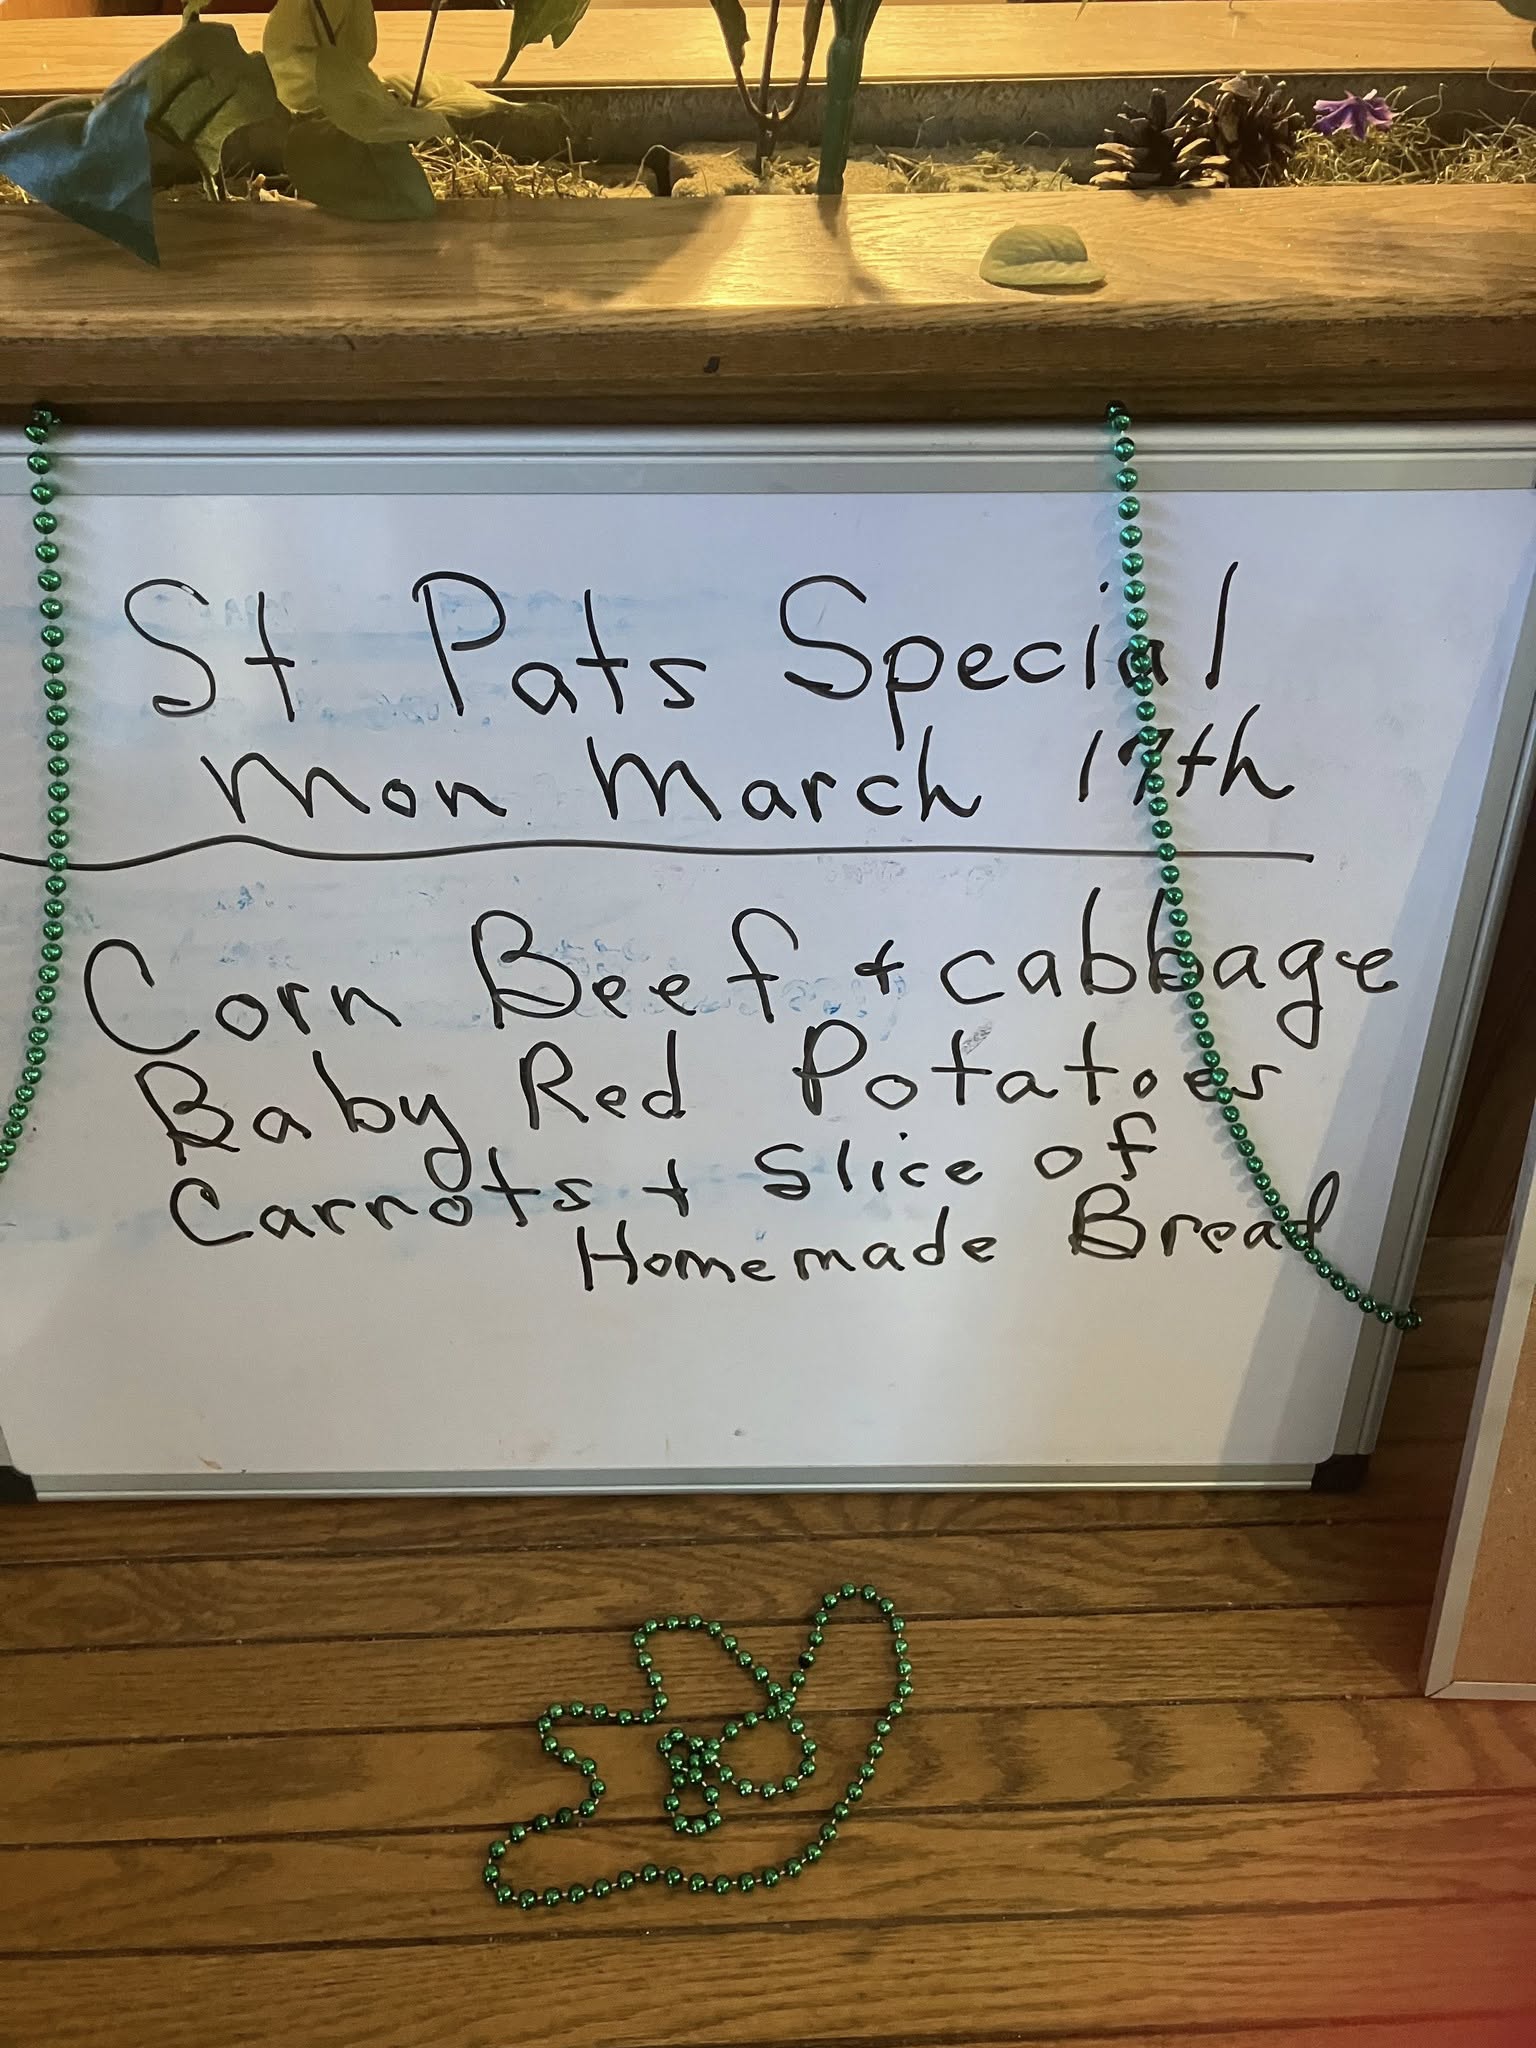 St Pats Special
Mon March 17th
Corn Beef + cabbage
Baby Red Potatoes
Carrots + Slice of
Homemade Bread